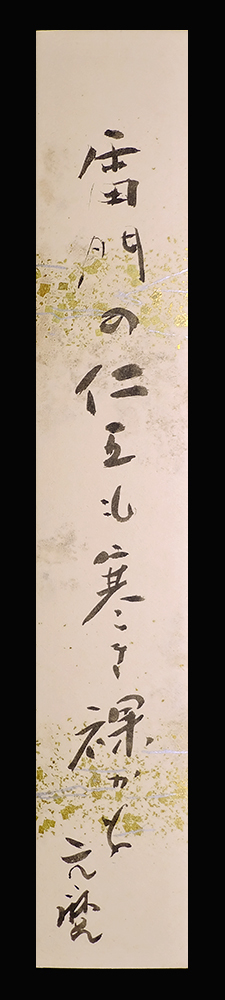 雷門の仁王も寒き裸かも
元麿